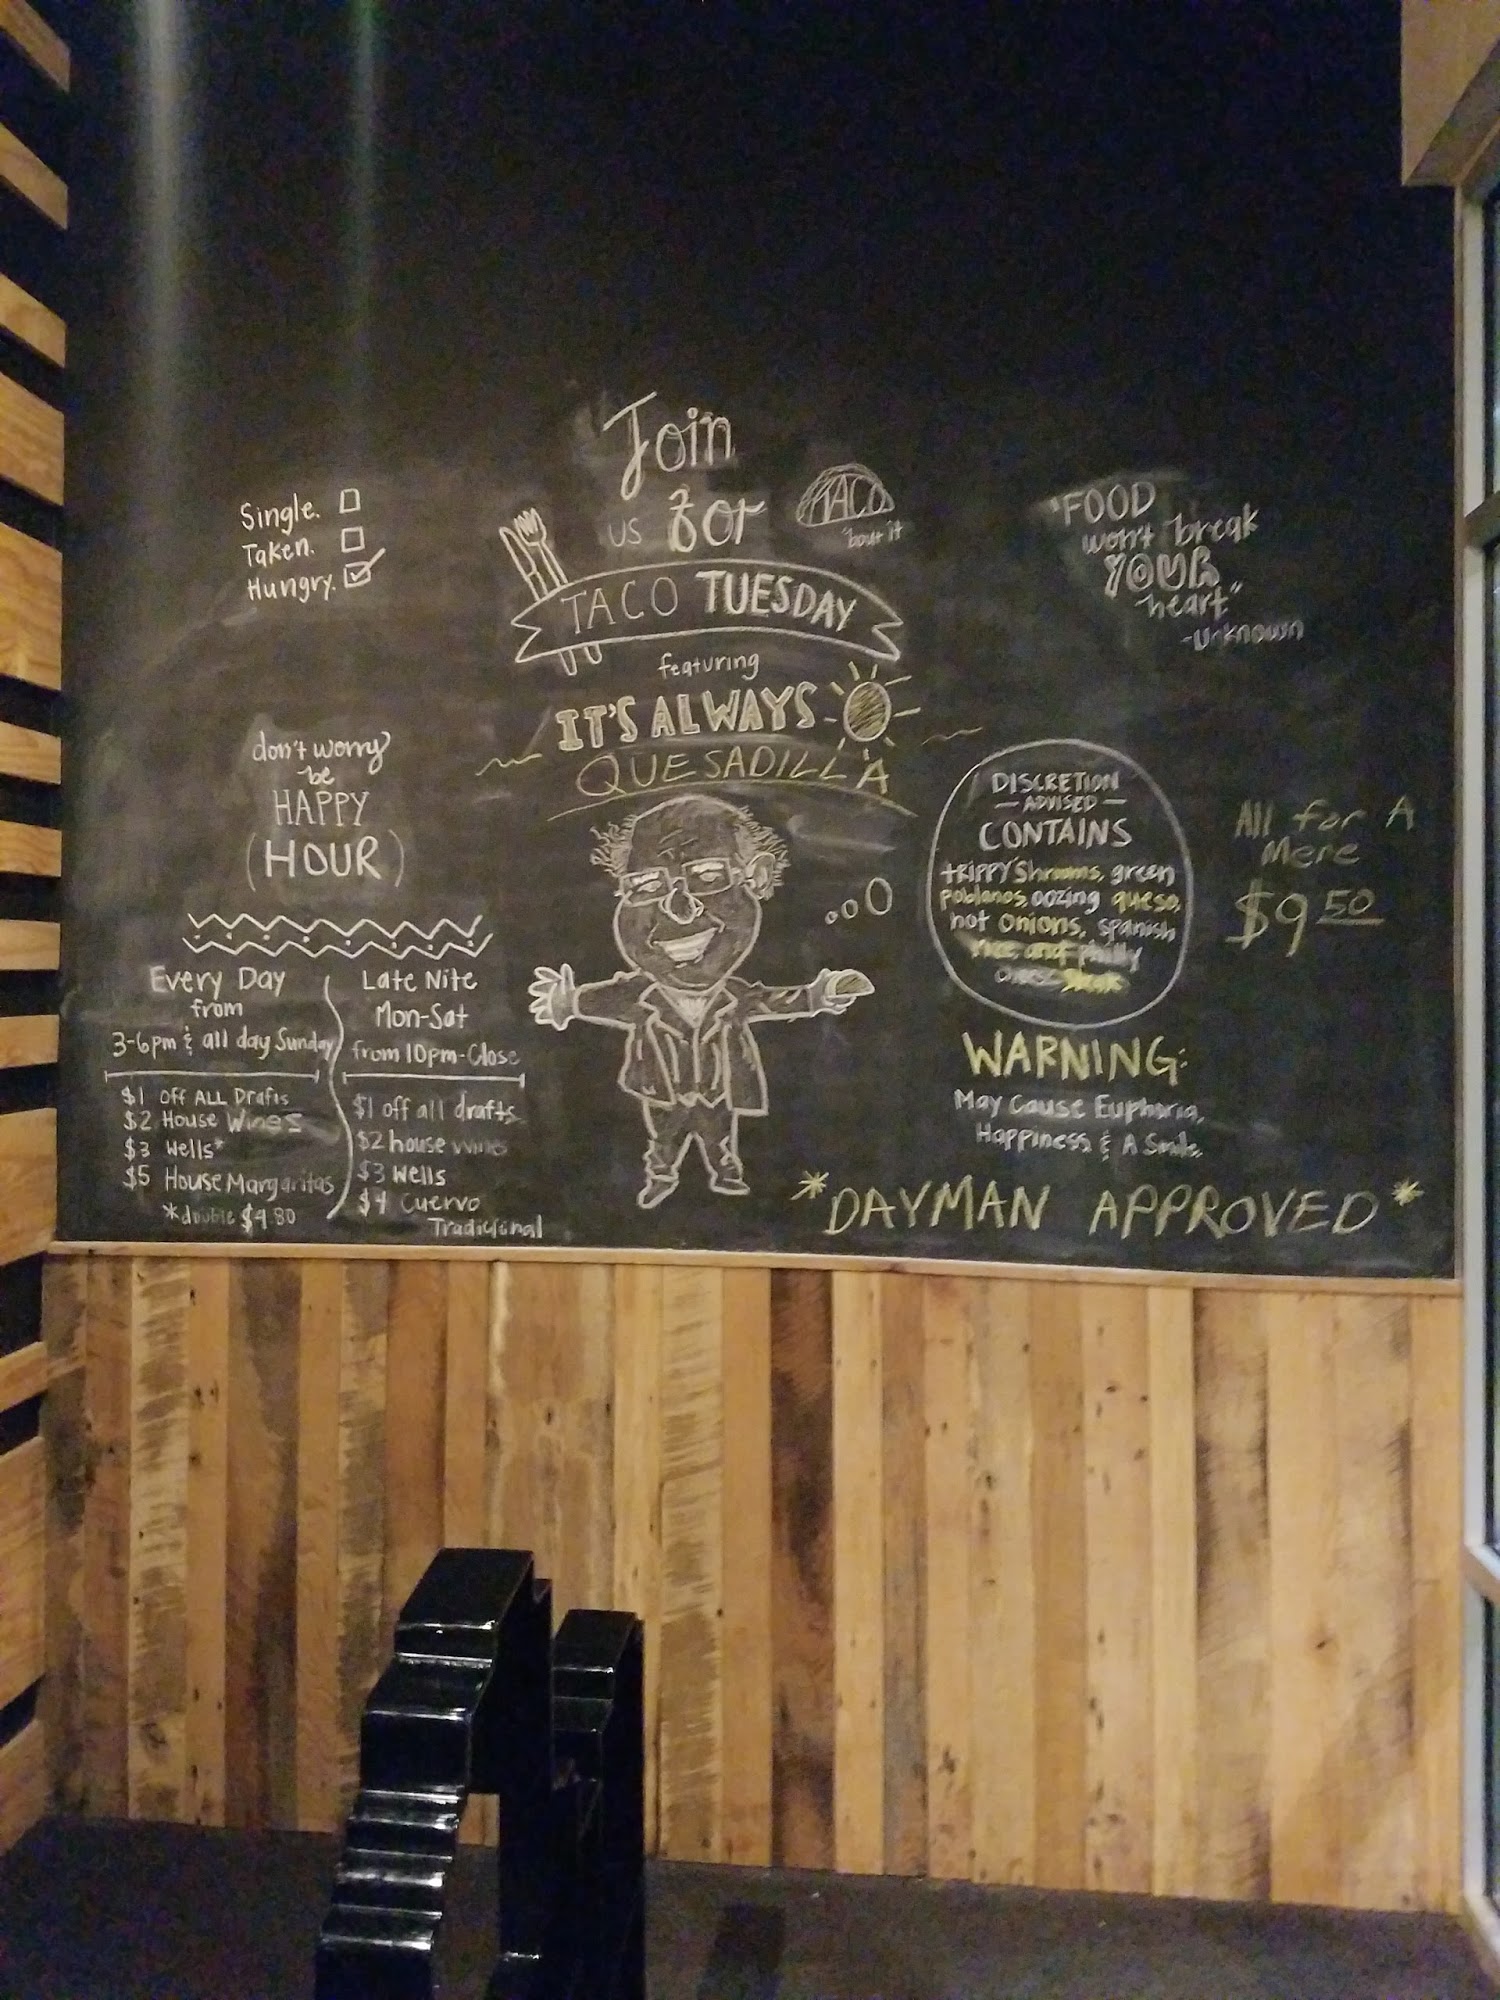 Join
us for
TACO
'bout it
TACO TUESDAY
featuring
IT'S ALWAYS
QUESADILLA
Single.
Taken.
Hungry.
"FOOD
won't break
YOUR
heart"
-Unknown
don't worry
be
HAPPY
(HOUR)
Every Day
from
3-6pm & all day Sunday
$1 Off ALL Drafts
$2 House Wines
$3 Wells*
$5 House Margaritas
*double $4.80
Late Nite
Mon-Sat
from 10pm-Close
$1 off all drafts
$2 house wines
$3 Wells
$4 Cuervo
Tradicional
DISCRETION
- ADVISED -
CONTAINS
tRIPPY 'Shrooms, green
poblanos, oozing queso,
hot onions, spanish
rice and philly
cheese steak
All for A
Mere
$9 50
WARNING:
May Cause Euphoria,
Happiness & A Smile.
*DAYMAN APPROVED*